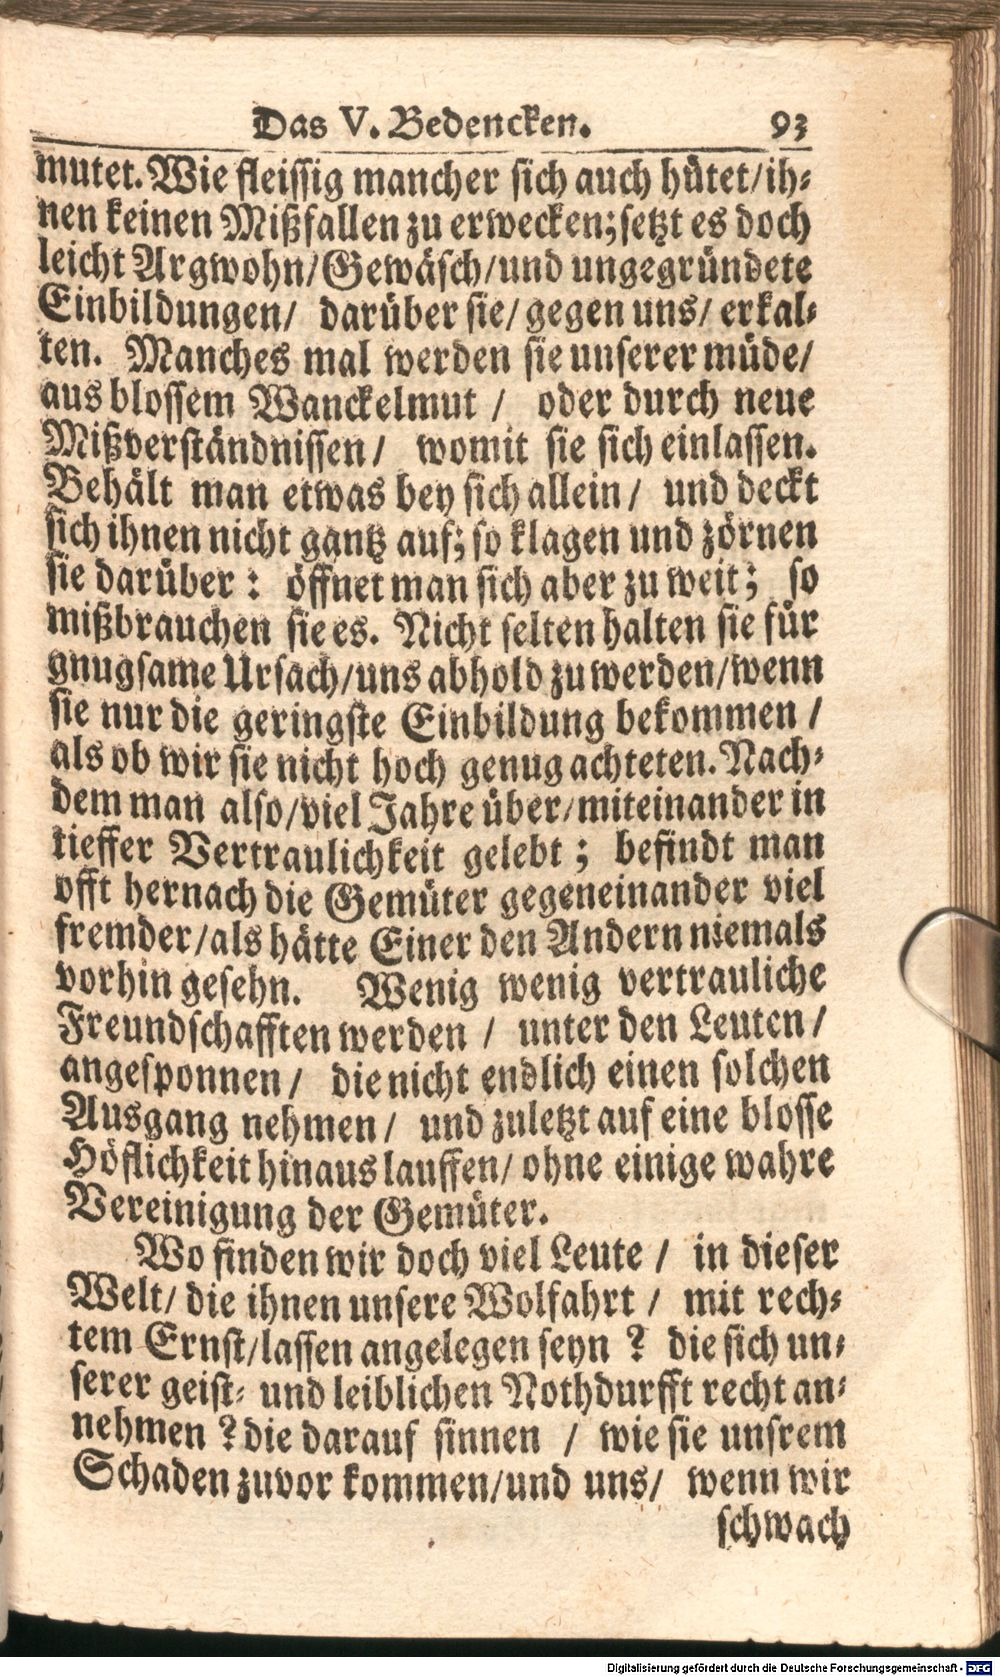 Das V. Bedencken. 93
mutet. Wie fleissig mancher sich auch hütet/ih-
nen keinen Mißfallen zu erwecken; setzt es doch
leicht Argwohn/Gewäsch/und ungegründete
Einbildungen/ darüber sie/ gegen uns/ erkal-
ten. Manches mal werden sie unserer müde/
aus blossem Wanckelmut / oder durch neue
Mißverständnissen/ womit sie sich einlassen.
Behält man etwas bey sich allein/ und deckt
sich ihnen nicht gantz auf; so klagen und zörnen
sie darüber: öffnet man sich aber zu weit; so
mißbrauchen sie es. Nicht selten halten sie für
gnugsame Ursach/uns abhold zu werden/wenn
sie nur die geringste Einbildung bekommen /
als ob wir sie nicht hoch genug achteten. Nach-
dem man also/viel Jahre über/miteinander in
tieffer Vertraulichkeit gelebt; befindt man
offt hernach die Gemüter gegeneinander viel
fremder/als hätte Einer den Andern niemals
vorhin gesehn. Wenig wenig vertrauliche
Freundschafften werden / unter den Leuten/
angesponnen/ die nicht endlich einen solchen
Ausgang nehmen/ und zuletzt auf eine blosse
Höflichkeit hinaus lauffen/ ohne einige wahre
Vereinigung der Gemüter.
Wo finden wir doch viel Leute / in dieser
Welt/ die ihnen unsere Wolfahrt / mit rech-
tem Ernst/lassen angelegen seyn? die sich un-
serer geist- und leiblichen Nothdurfft recht an-
nehmen? die darauf sinnen / wie sie unsrem
Schaden zuvor kommen/und uns/ wenn wir
schwach
Digitalisierung gefördert durch die Deutsche Forschungsgemeinschaft - DFG